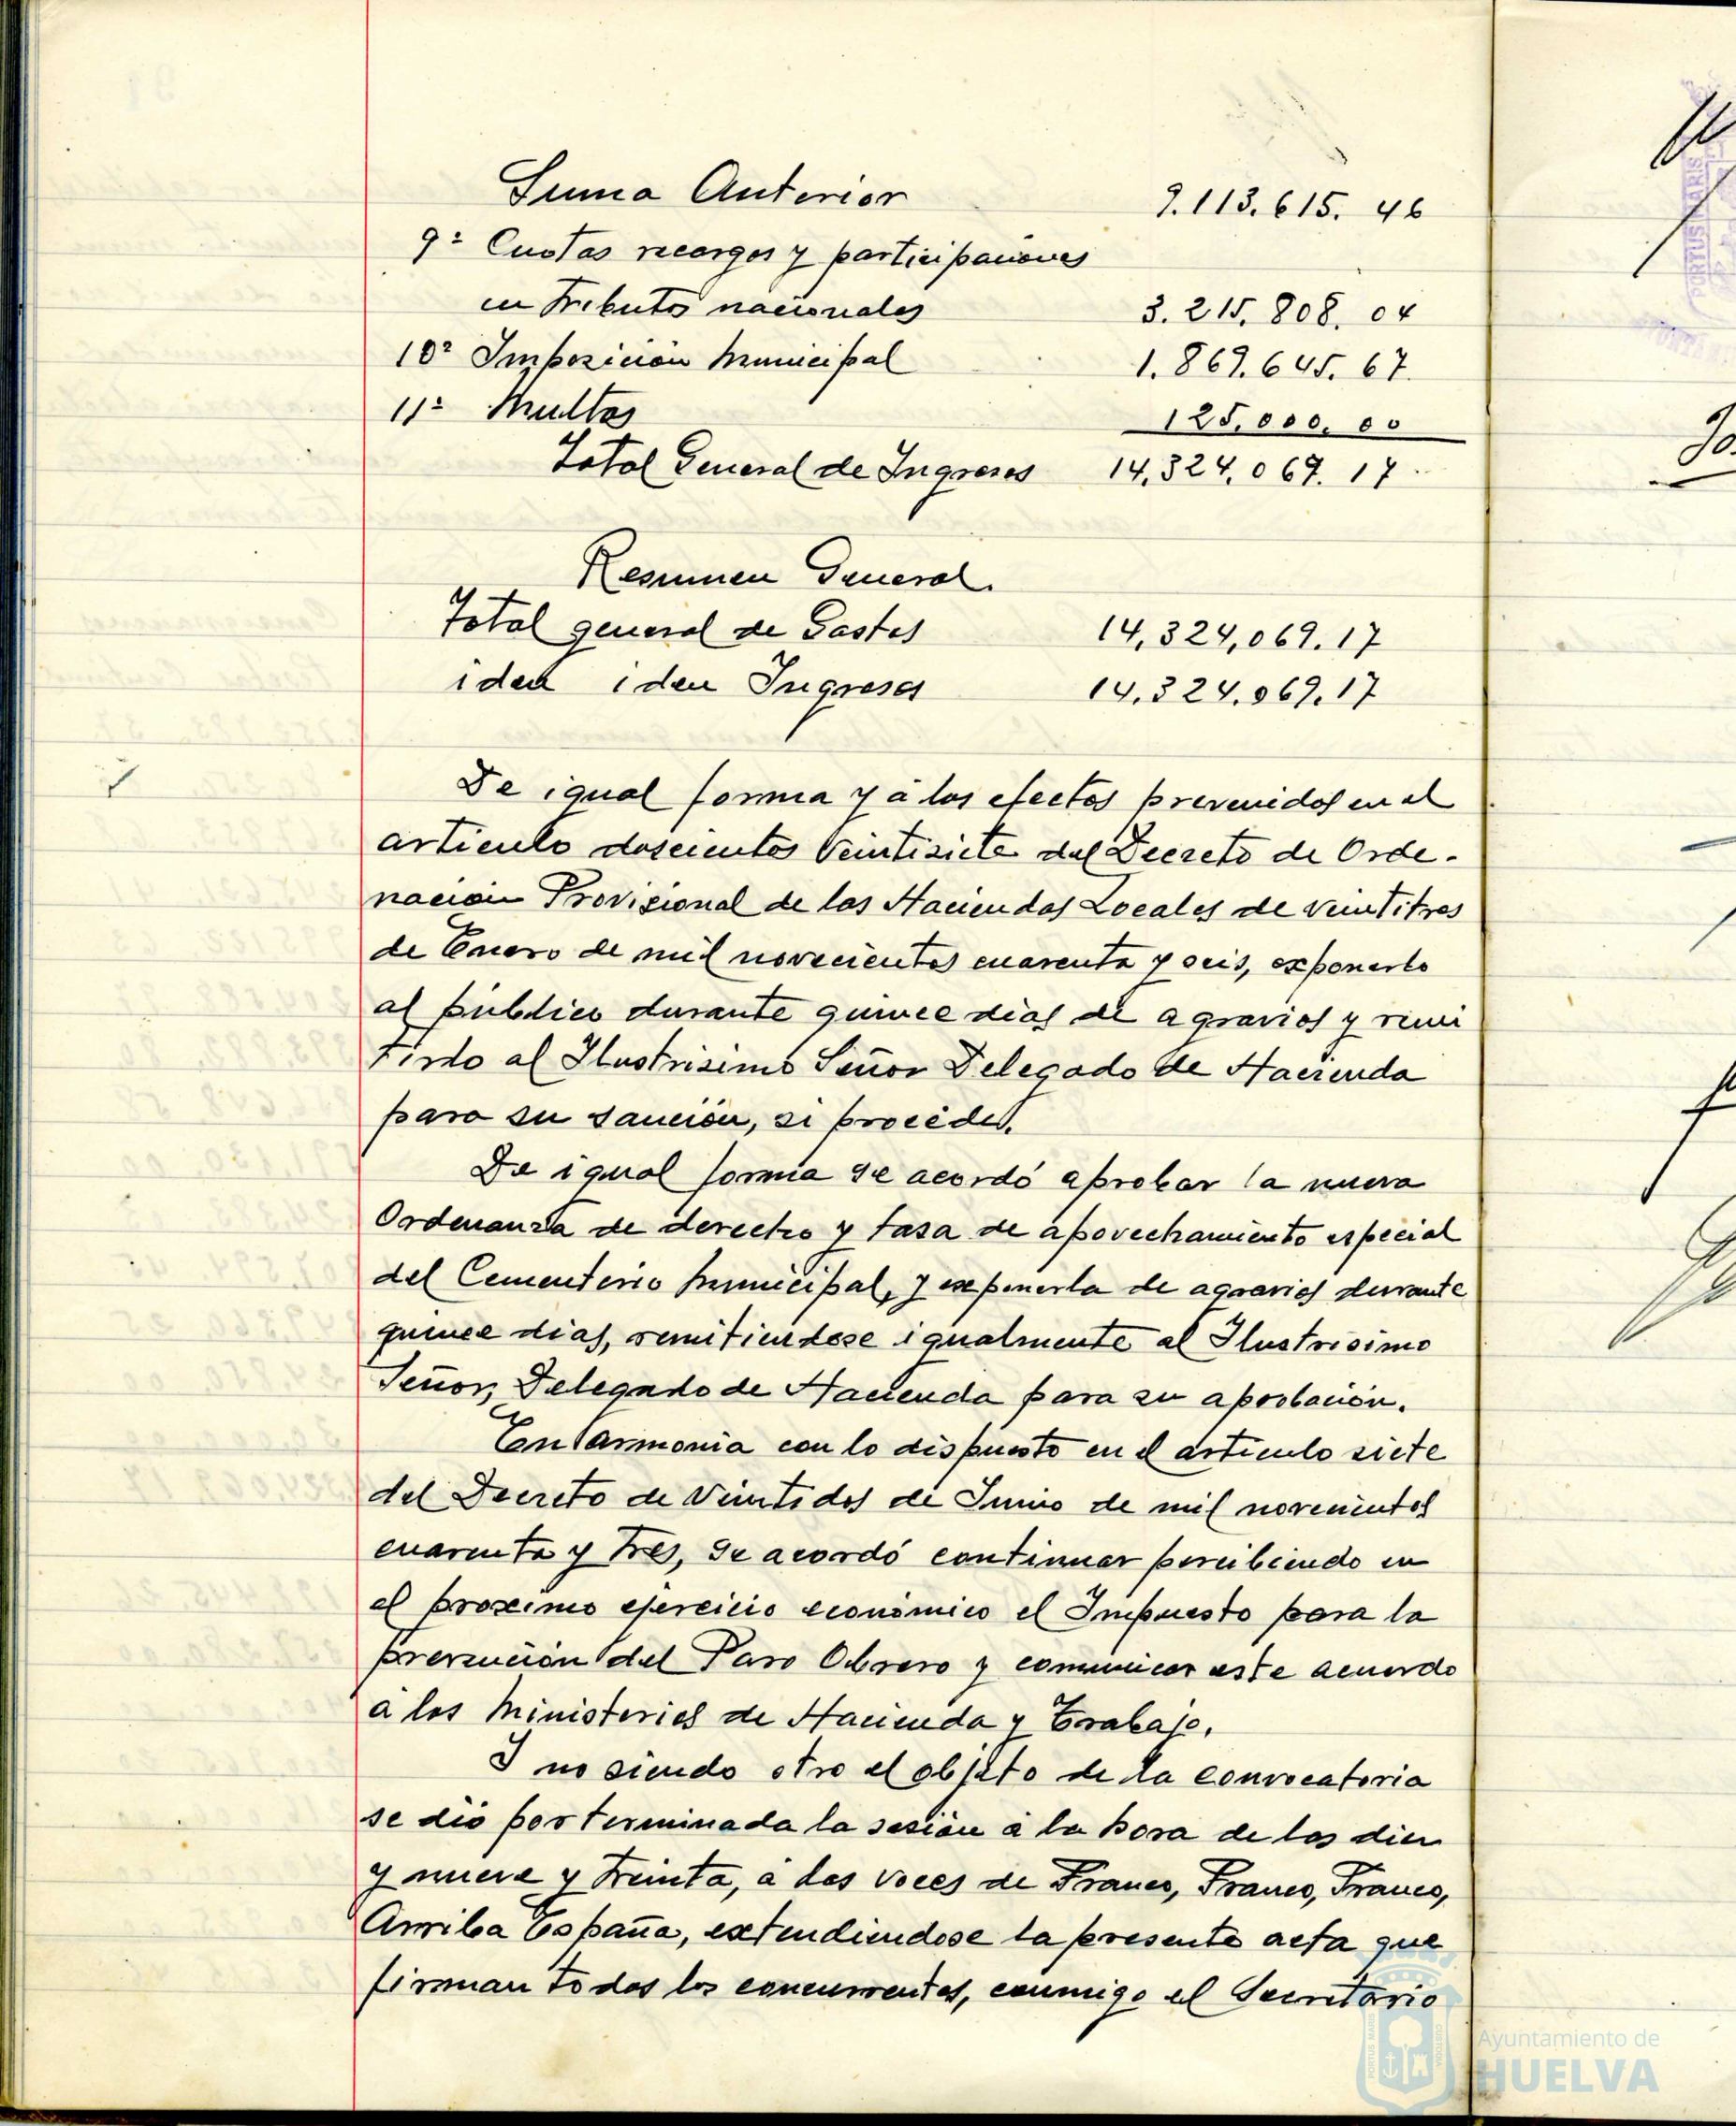 Suma Anterior 9.113.615.46
9º Cuotas recargos y participaciones
en Tributos nacionales 3.215.808.04
10º Imposición Municipal 1.869.645.67.
11º Multas 125.000.00
Total General de Ingresos 14,324,069.17.
Resumen General.
Total general de Gastos 14,324,069.17
iden iden Ingresos 14.324.069.17
De igual forma y a los efectos prevenidos en el
articulo doscientos Veintisiete del Decreto de Orde-
nación Provisional de las Haciendas Locales de veintitres
de Enero de mil novecientos cuarenta y seis, exponerlo
al público durante quince dias de agravios y remi
tirlo al Ilustrisimo Señor Delegado de Hacienda
para su sanción, si procede.
De igual forma se acordó aprobar la nueva
Ordenanza de derecho y tasa de apovechamiento especial
del Cementerio Municipal, y exponerla de agravios durante
quince dias, remitiendose igualmente al Ilustrisimo
Señor, Delegado de Hacienda para su aprobación.
En armonia con lo dispuesto en el articulo siete
del Decreto de Veintidos de Junio de mil novecientos
cuarenta y tres, se acordó continuar percibiendo en
el proximo ejercicio económico el Impuesto para la
prevención del Paro Obrero y comunicar este acuerdo
a los Ministerios de Hacienda y Trabajo.
Y no siendo otro el objeto de la convocatoria
se dió por terminada la sesión a la hora de las diez
y nueve y treinta, a las voces de Franco, Franco, Franco,
Arriba España, extendiendose la presente acta que
firman todos los concurrentes, conmigo el Secretario
Ayuntamiento de
HUELVA